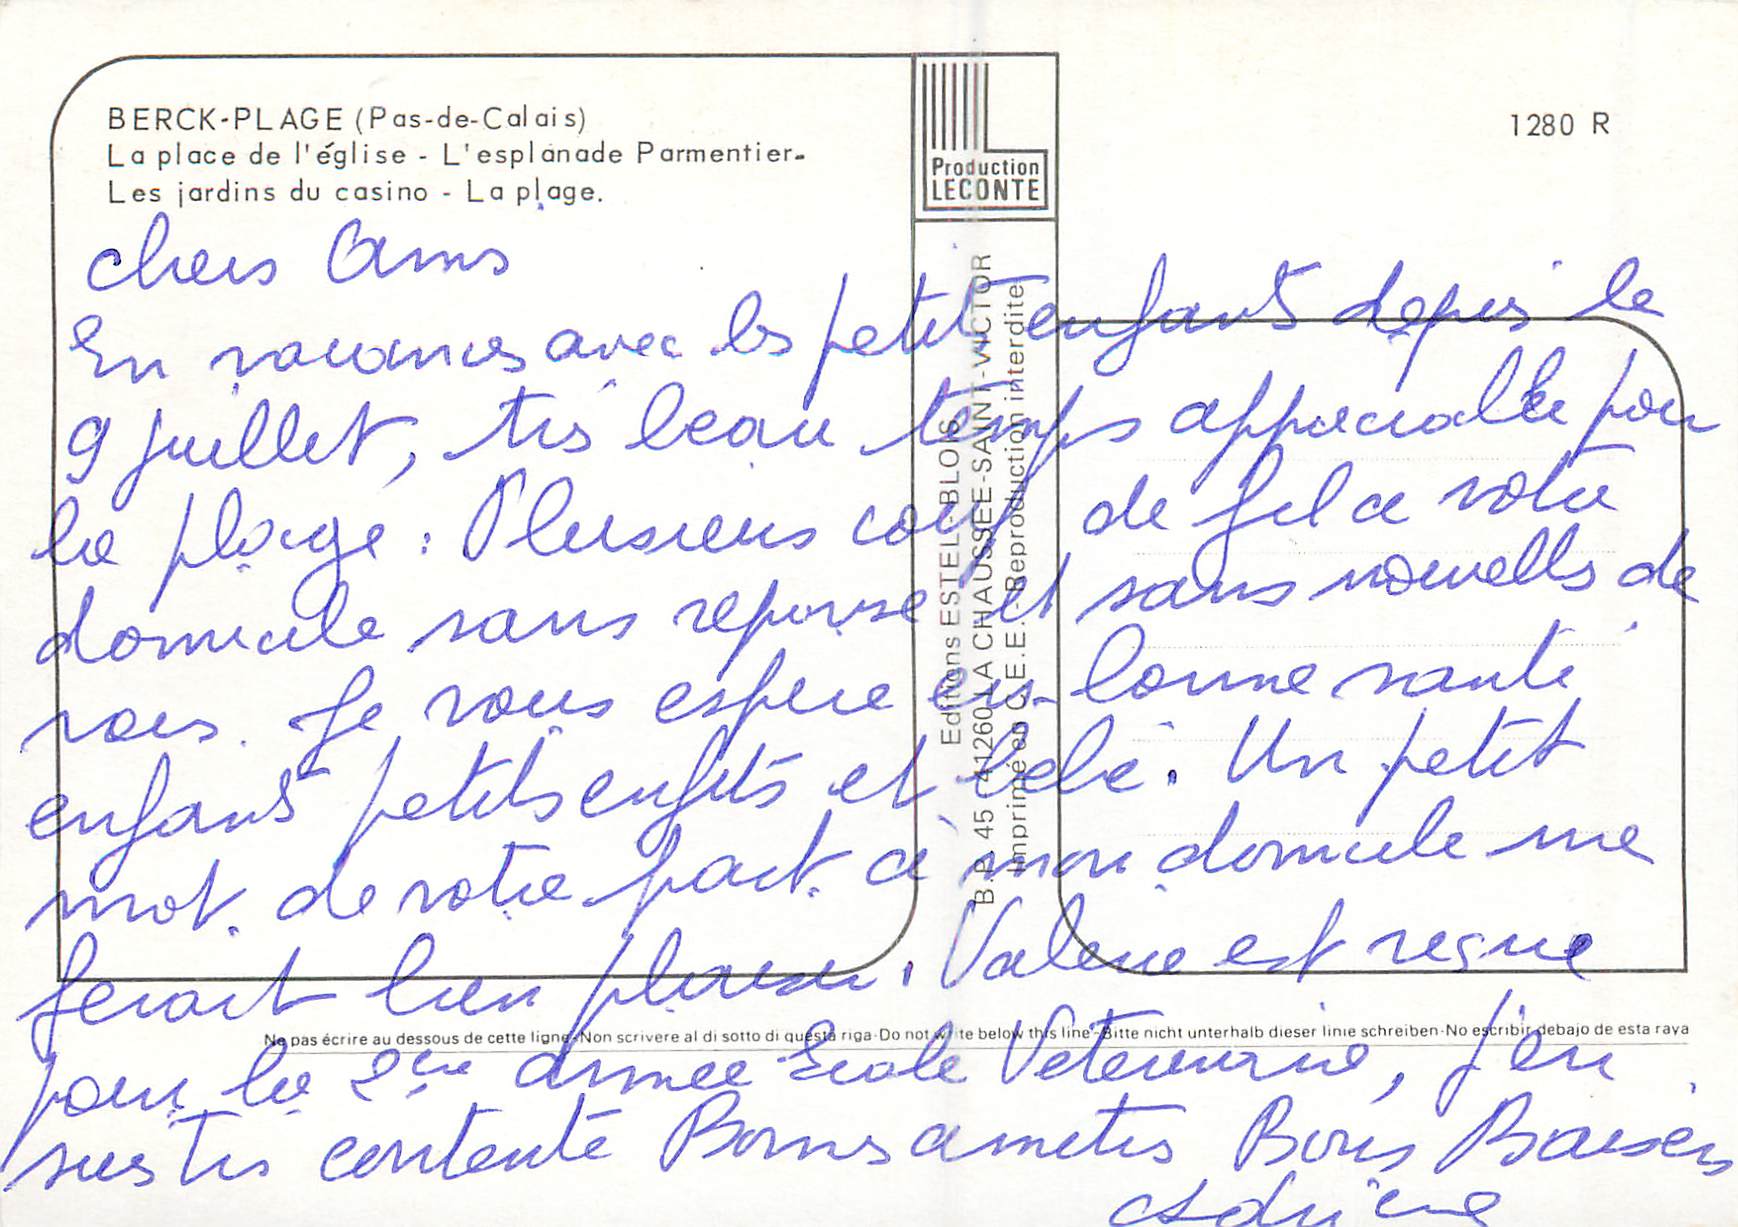 BERCK-PLAGE (Pas-de-Calais)
La place de l'église - L'esplanade Parmentier-
Les jardins du casino - La plage.
Production
LECONTE
1280 R
Editions ESTEL - BLOIS
B.P. 45 - 41260 LA CHAUSSÉE-SAINT-VICTOR
Imprimé en C.E.E. - Reproduction interdite
chers Amis
En vacances avec les petits enfants depuis le
9 juillet, très beau temps appréciable pour
la plage. Plusieurs coups de fil a votre
domicile sans reponse et sans nouvelles de
vous. Je vous espere en bonne santé
enfants petits enfts et bébé. Un petit
mot de votre part à mon domicile me
ferait bien plaisir. Valerie est reçue
pour la 2ème année Ecole Veterinaire, j'en
suis très contente Bonnes amitiés Bons Baisers
Adriene
Ne pas écrire au dessous de cette ligne-Non scrivere al di sotto di questa riga-Do not write below this line-Bitte nicht unterhalb dieser linie schreiben-No escribir debajo de esta raya